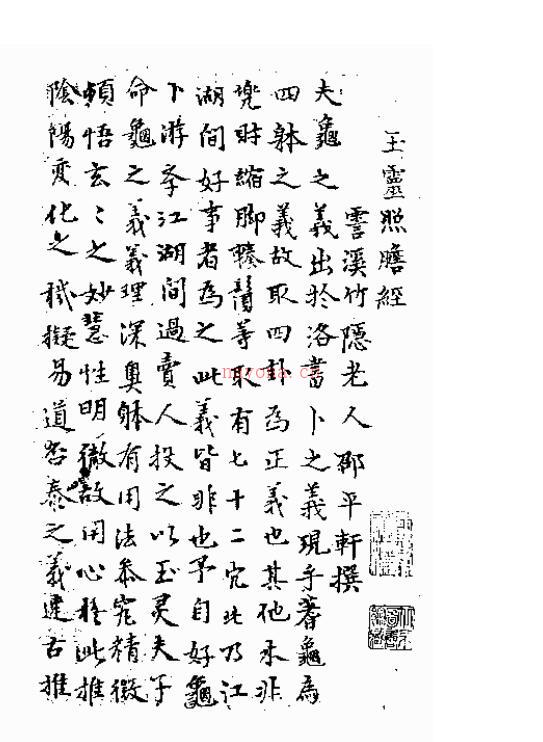 玉靈照膽經
霅溪竹隱老人邵平軒撰
夫龜之義出於洛書卜之義現乎蓍龜為
四躰之義故取四卦為正義也其他求非
財縮脚等取有七十二究此乃江
湖間好事者為之此義皆非也予自好龜
卜游学江湖間過賣人授之以玉灵夫子
命龜之義義理深奥躰有用法叅究精微
頓悟玄〻之妙慧性明徹故用心於此推
陰陽变化之機擬易道否泰之義述古推
nayona.cn